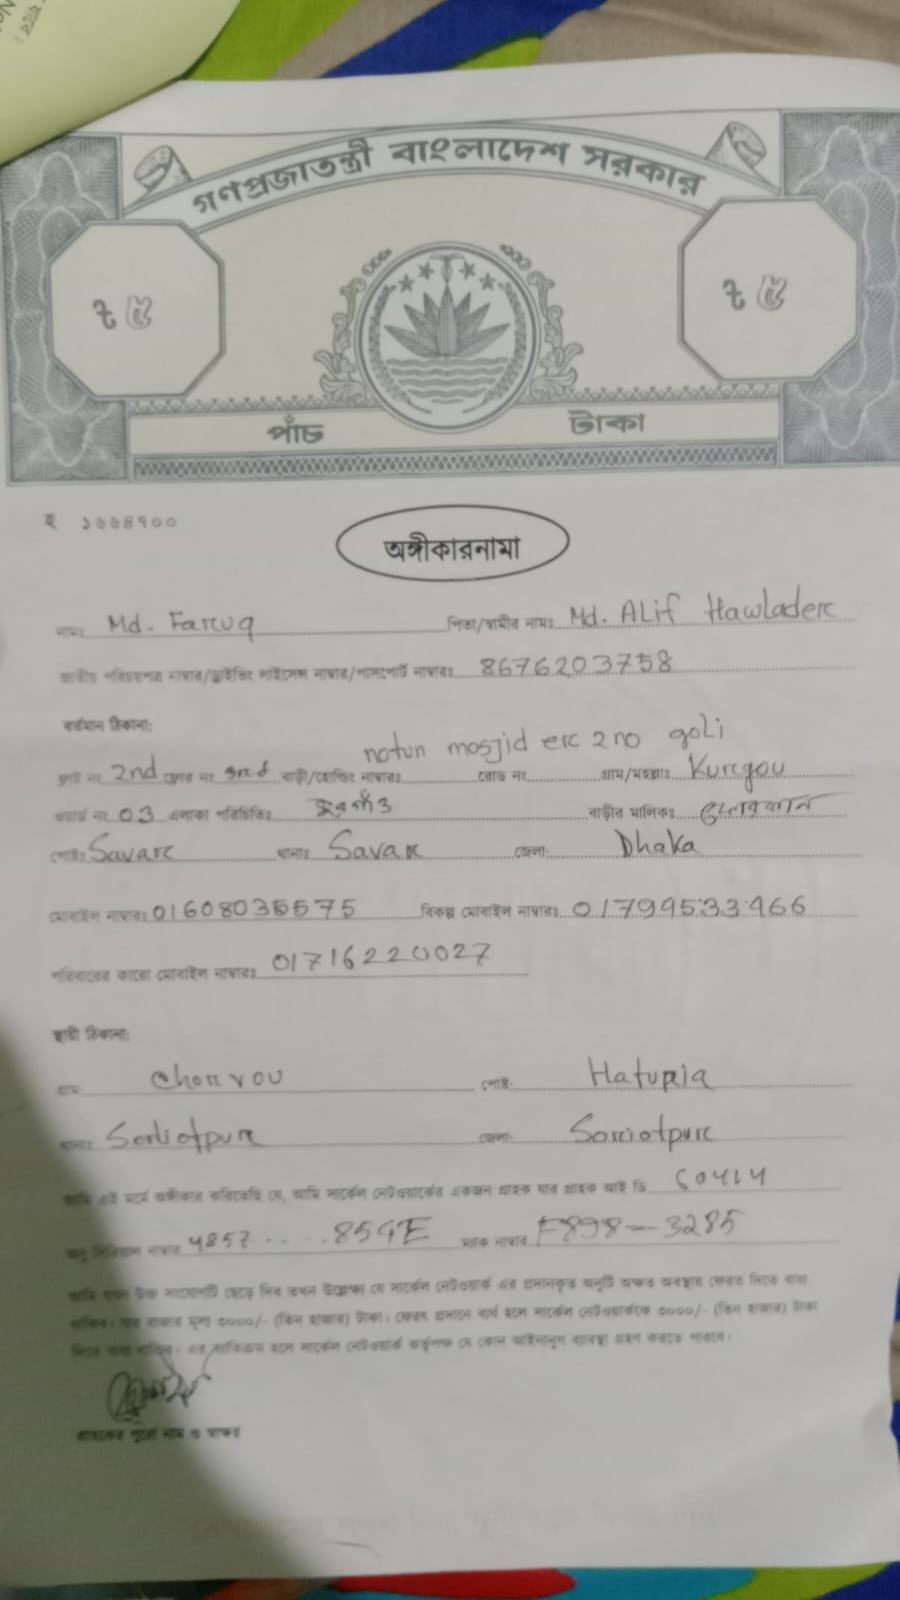 গণপ্রজাতন্ত্রী বাংলাদেশ সরকার
৳ ৫ ৳ ৫
পাঁচ টাকা
১৬৬৪৭০০
অঙ্গীকারনামা
নামঃ Md. Faruq পিতা/স্বামীর নামঃ Md. ALif Hawlader
জাতীয় পরিচয়পত্র নাম্বার/ড্রাইভিং লাইসেন্স নাম্বার/পাসপোর্ট নাম্বারঃ 8676203758
বর্তমান ঠিকানা:
notun mosjid er 2 no goli
ফ্লাট নং 2nd ফ্লোর নং 3rd বাড়ী/হোল্ডিং নাম্বারঃ রোড নং গ্রাম/মহল্লাঃ Kurgou
ওয়ার্ড নং 03 এলাকা পরিচিতিঃ বাড়ীর মালিকঃ
পোষ্টঃ Savar থানাঃ Savar জেলা: Dhaka
মোবাইল নাম্বারঃ 01608035575 বিকল্প মোবাইল নাম্বারঃ 01799533466
পরিবারের কারো মোবাইল নাম্বারঃ 01716220027
স্থায়ী ঠিকানা:
গ্রাম: পোষ্ট: Haturia
থানাঃ জেলা: Soriotpur
আমি এই মর্মে অঙ্গীকার করিতেছি যে, আমি সার্কেল নেটওয়ার্কের একজন গ্রাহক যার গ্রাহক আই ডি
অনু সিরিয়াল নাম্বার ম্যাক নাম্বার F898-3285
আমি যখন উক্ত সংযোগটি ছেড়ে দিব তখন উল্লেক্ষ্য যে সার্কেল নেটওয়ার্ক এর প্রদানকৃত অনুটি অক্ষত অবস্থায় ফেরত দিতে বাধ্য
থাকিব। যার বাজার মূল্য ৩০০০/- (তিন হাজার) টাকা। ফেরৎ প্রদানে ব্যর্থ হলে সার্কেল নেটওয়ার্ককে ৩০০০/- (তিন হাজার) টাকা
দিতে বাধ্য থাকিব। এর ব্যতিক্রম হলে সার্কেল নেটওয়ার্ক কর্তৃপক্ষ যে কোন আইনানুগ ব্যবস্থা গ্রহণ করতে পারবে।
গ্রাহকের পুরো নাম ও স্বাক্ষর